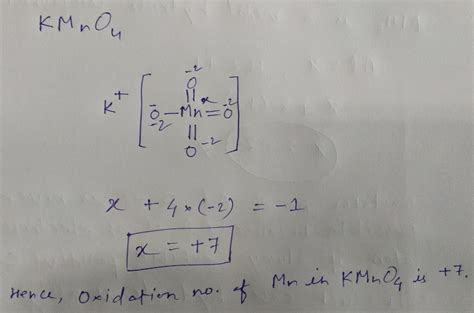 KMnO4
-2
O
K+ [ -O - Mn x = O -2 ]
-2
O -2
x + 4×(-2) = -1
x = +7
Hence, Oxidation no. of Mn in KMnO4 is +7.